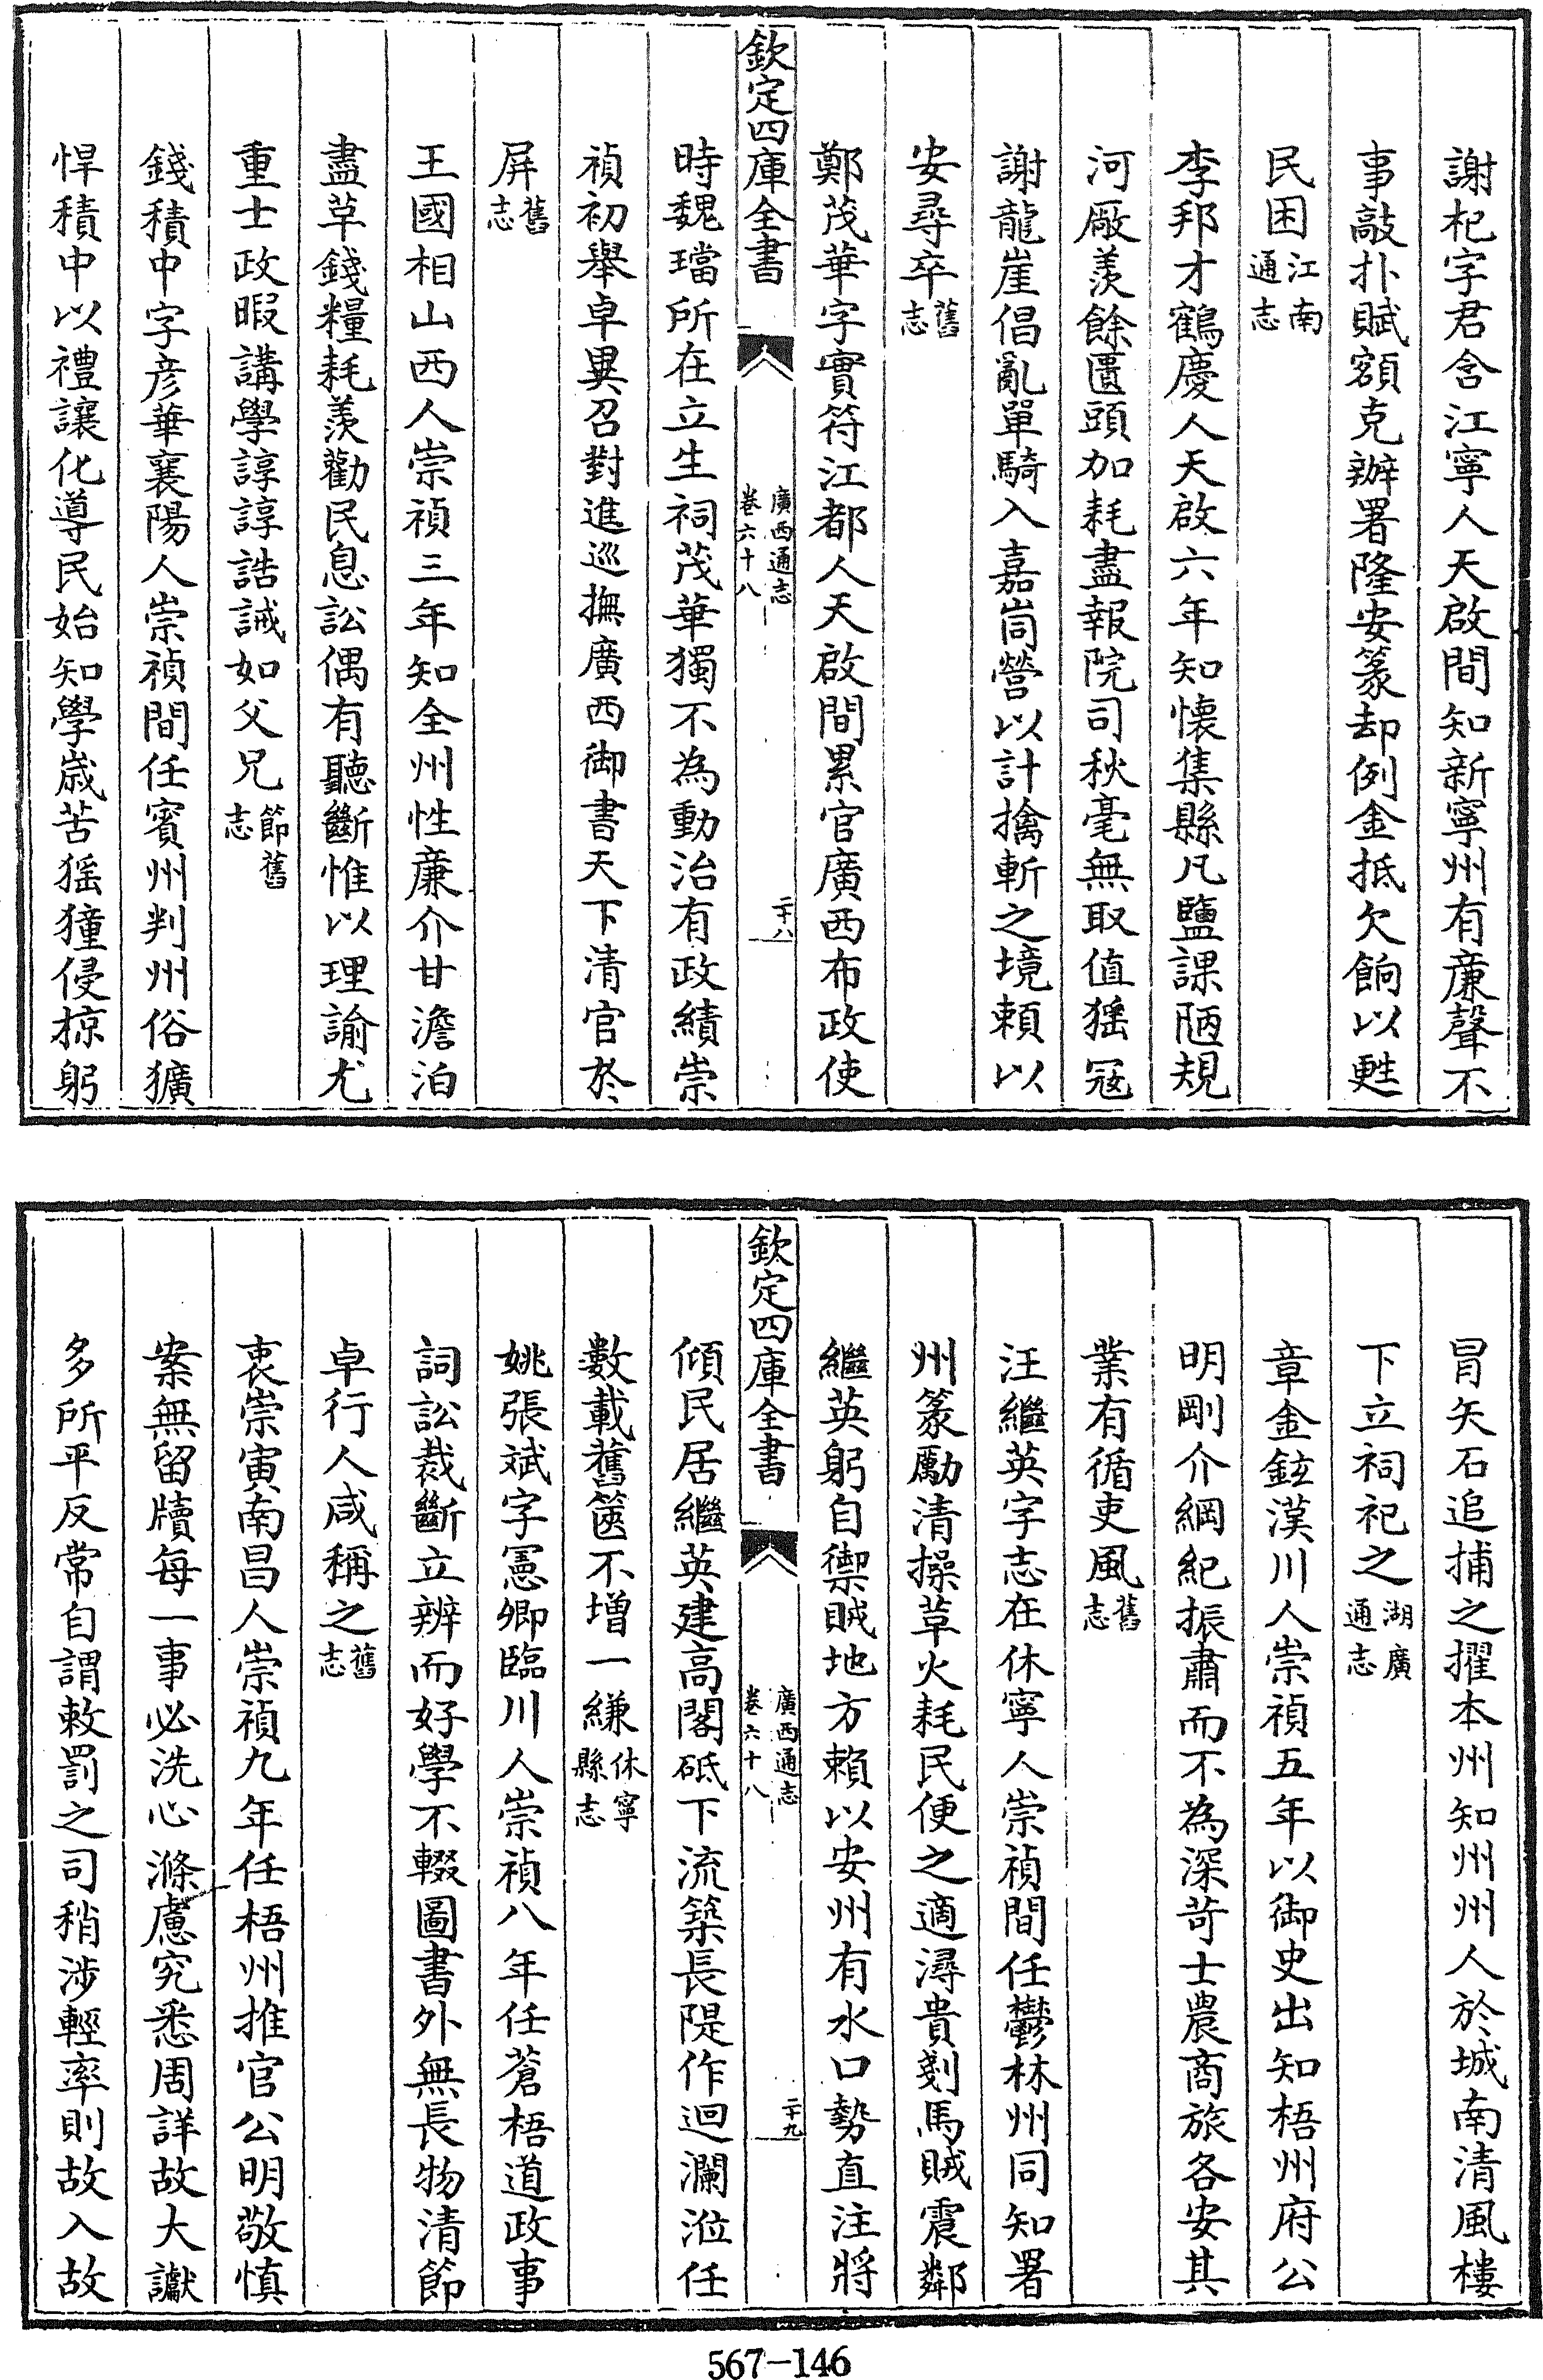 謝杞字君含江寧人天啟間知新寧州有亷聲不
事敲扑賦額克辦署隆安篆却例金抵欠餉以甦
民困江南通志
李邦才鶴慶人天啟六年知懷集縣凡鹽課陋規
河厰羨餘匱頭加耗盡報院司秋毫無取值猺冦
謝龍崖倡亂單騎入嘉峝營以計擒斬之境頼以
安尋卒舊志
鄭茂華字實符江都人天啟間累官廣西布政使
欽定四庫全書
廣西通志
卷六十八
二十八
時魏璫所在立生祠茂華獨不為動治有政績崇
禎初舉卓異召對進巡撫廣西御書天下清官於
屏舊志
王國相山西人崇禎三年知全州性亷介甘澹泊
盡草錢糧耗羨勸民息訟偶有聽斷惟以理諭尤
重士政暇講學諄諄誥誡如父兄節舊志
錢積中字彦華襄陽人崇禎間任賓州判州俗獷
悍積中以禮讓化導民始知學歲苦猺獞侵掠躬
冒矢石追捕之擢本州知州州人於城南清風樓
下立祠祀之湖廣通志
章金鉉漢川人崇禎五年以御史出知梧州府公
明剛介綱紀振肅而不為深苛士農商旅各安其
業有循吏風舊志
汪繼英字志在休寧人崇禎間任鬱林州同知署
州篆勵清操草火耗民便之適潯貴剗馬賊震鄰
繼英躬自禦賊地方頼以安州有水口勢直注將
欽定四庫全書
廣西通志
卷六十八
二十九
傾民居繼英建高閣砥下流築長隄作迴瀾涖任
數載舊篋不增一縑休寧縣志
姚張斌字憲卿臨川人崇禎八年任蒼梧道政事
詞訟裁斷立辨而好學不輟圖書外無長物清節
卓行人咸稱之舊志
衷崇寅南昌人崇禎九年任梧州推官公明敬慎
案無留牘每一事必洗心滌慮究悉周詳故大讞
多所平反常自謂敕罰之司稍涉輕率則故入故
567-146